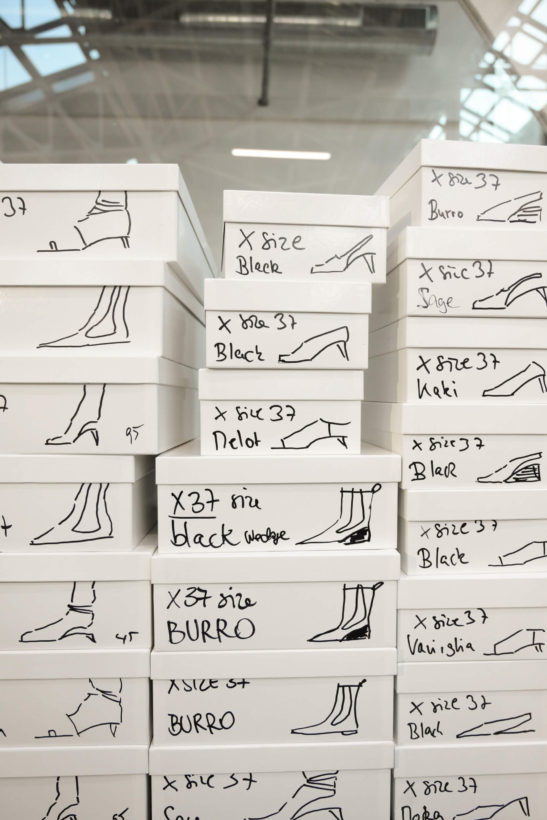 37
95
45
X size
Black
X size 37
Black
X size 37
Melot
X 37 size
black wedge
X 37 size
BURRO
X SIZE 37
BURRO
X size 37
X size 37
Burro
X size 37
Sage
X size 37
Kaki
X size 37
Black
X size 37
Black
X size 37
Vaniglia
X size 37
Black
X size 37